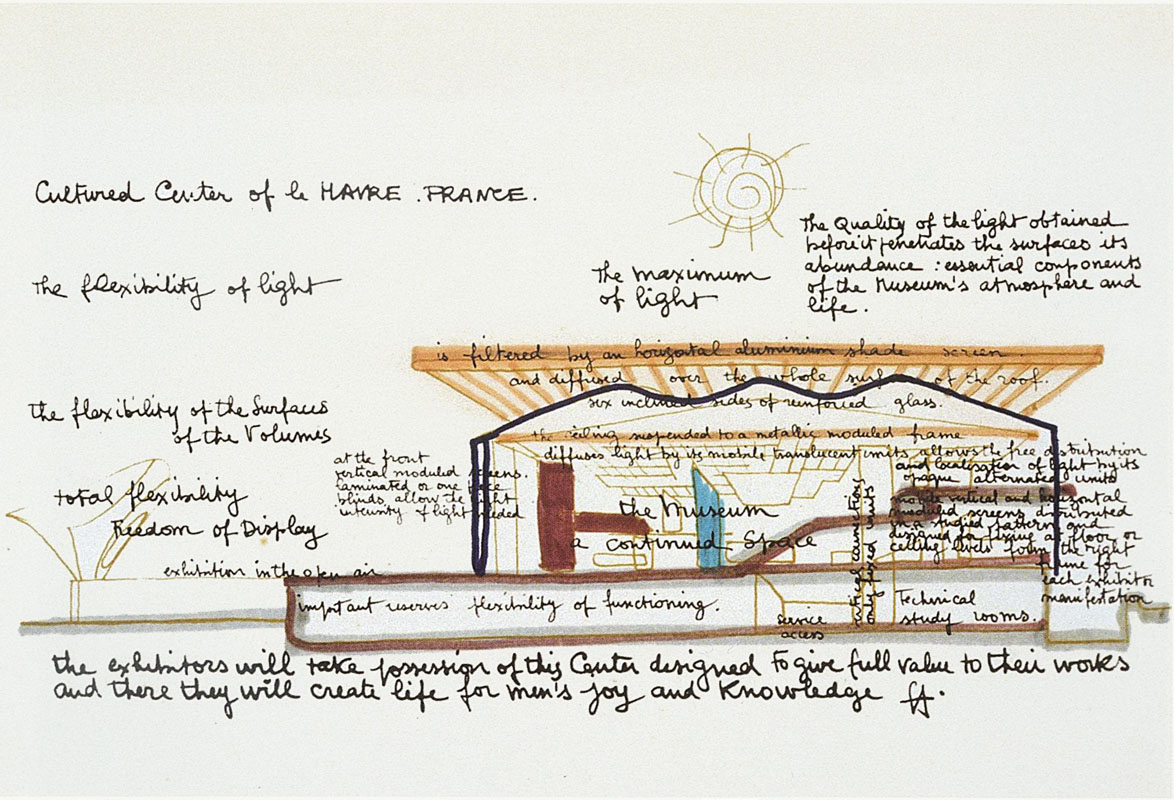 Cultured Center of le HAVRE . FRANCE.
The flexibility of light
The maximum
of light
The Quality of the light obtained
before it penetrates the surfaces its
abundance : essential components
of the Museum's atmosphere and
life.
is filtered by an horizontal aluminium shade screen.
and diffused over the whole surface of the roof.
six inclined sides of reinforced glass.
the flexibility of the Surfaces
of the Volumes
the ceiling suspended to a metallic moduled frame
diffuses light by its mobile translucent units allows the free distribution
and localisation of light by its
opaque alternated units
at the front
vertical moduled screens.
laminated or one piece
blinds, allow the light
intensity of light needed
total flexibility
Freedom of Display
exhibition in the open air
the Museum
a continued Space
mobile vertical and horizontal
moduled screens distributed
in a studied pattern and
designed for fixing at floor or
ceiling levels form the right
frame for
each exhibitor
manifestation
vertical communications
only fixed units
important reserves flexibility of functioning.
service
access
Technical
study rooms.
the exhibitors will take possession of this Center designed to give full value to their works
and there they will create life for men's joy and Knowledge